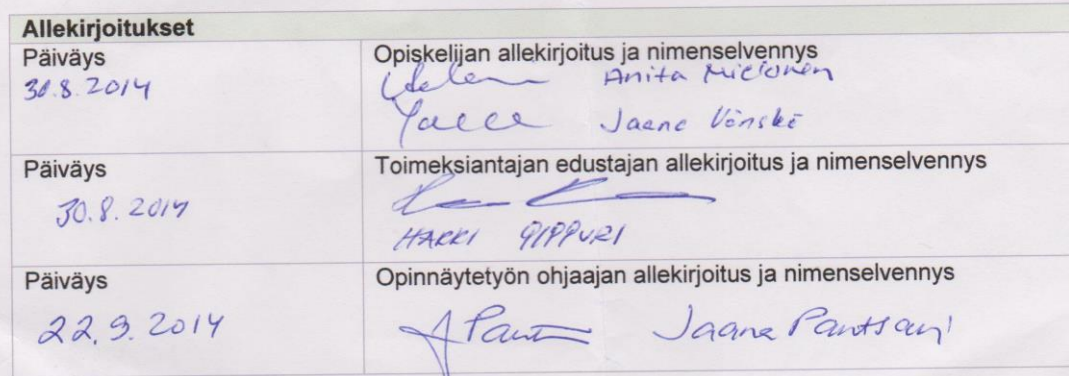 Allekirjoitukset
Päiväys
30.8.2014
Opiskelijan allekirjoitus ja nimenselvennys
Anita
Jaana
Päiväys
30.8.2014
Toimeksiantajan edustajan allekirjoitus ja nimenselvennys
HARRI PIPPURI
Päiväys
22.9.2014
Opinnäytetyön ohjaajan allekirjoitus ja nimenselvennys
Jaana Pantsari